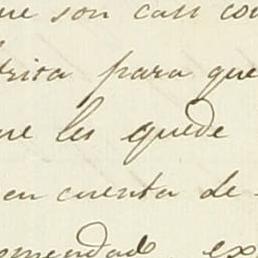 ue son casi co
rita para que
ue les quede
en cuenta de
omendad ex